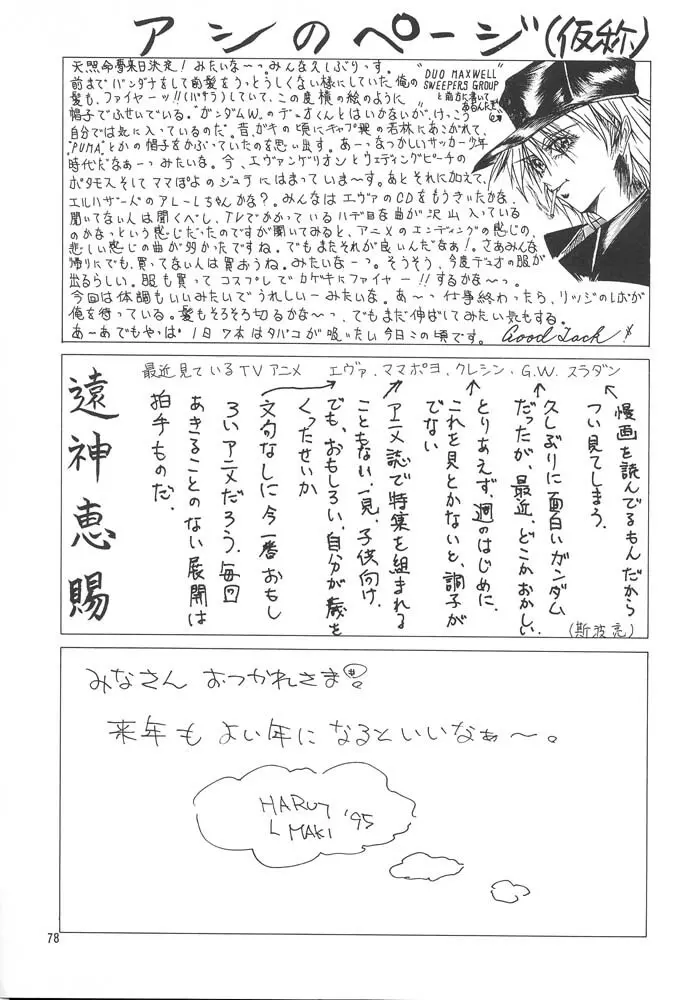 アシのページ(仮称)
天照命夢来日決定！みたいなーっ。みんな久しぶりっす。
前までバンダナをして前髪をうっとうしくない様にしていた俺の
髪も、ファイヤーッ!!(バサラ)していて、この度横の絵のように
帽子でふせいでいる。"ガンダムW"のデュオくんとはいかないが、けっこう
自分では気に入っているのだ。昔、ガキの頃にキャプ翼の若林にあこがれて、
"PUMA"とかの帽子をかぶっていたのを思い出す。あーなつかしいサッカー少年
時代だなぁーっみたいな。今、エヴァンゲリオンとウェディングピーチの
ポタモスそしてママぽよのジュテにはまっていま〜す。あとそれに加えて、
エルハザードのアレーレちゃんかな？みんなはエヴァのCDをもうきいたかな、
聞いてない人は聞くべし、TVでかかっているハデ目な曲が沢山入っている
のかなっという感じだったのですが聞いてみると、アニメのエンディングの感じの、
悲しい感じの曲が多かったですね。でもまたそれが良いんだなぁ！。さあみんな
帰りにでも、買ってない人は買おうね。みたいなーっ。そうそう、今度デュオの服が
出るらしい。服も買って コスプレでカゲキにファイヤー!!するかな〜っ。
今回は体調もいいみたいでうれしいーみたいな。あ〜っ仕事終わったら、リッジのレボが
俺を待っている。髪もそろそろ切るかな〜っ、でもまだ伸ばしてみたい気もする。
あーあでもやっぱ 1日7本はタバコが吸いたい今日この頃です。Good Luck!
"DUO MAXWELL"
SWEEPERS GROUP
と両方に書いて
あるんだぞ
遠神恵賜
最近見ているTVアニメ エヴァ、ママポヨ、クレシン、G.W. スラダン
漫画を読んでるもんだから
つい見てしまう。
久しぶりに面白いガンダム
だったが、最近、どこかおかしい
とりあえず、週のはじめに、
これを見とかないと、調子が
でない
アニメ誌で特集を組まれる
こともない、一見、子供向け、
でも、おもしろい、自分が歳を
くったせいか
文句なしに今一番おもし
ろいアニメだろう、毎回
あきることのない展開は
拍手ものだ。
(斯波亮)
みなさん おつかれさま!
来年も よい年に なるといいなぁ〜。
MAKI '95
78